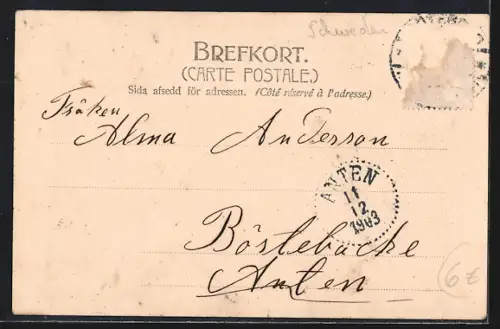 Schweden
BREFKORT.
(CARTE POSTALE.)
Sida afsedd för adressen. (Côté réservé à l'adresse.)
Fröken
Alma Anderson
ANTEN
11
12
1903
Böstebacke
Anten
6€